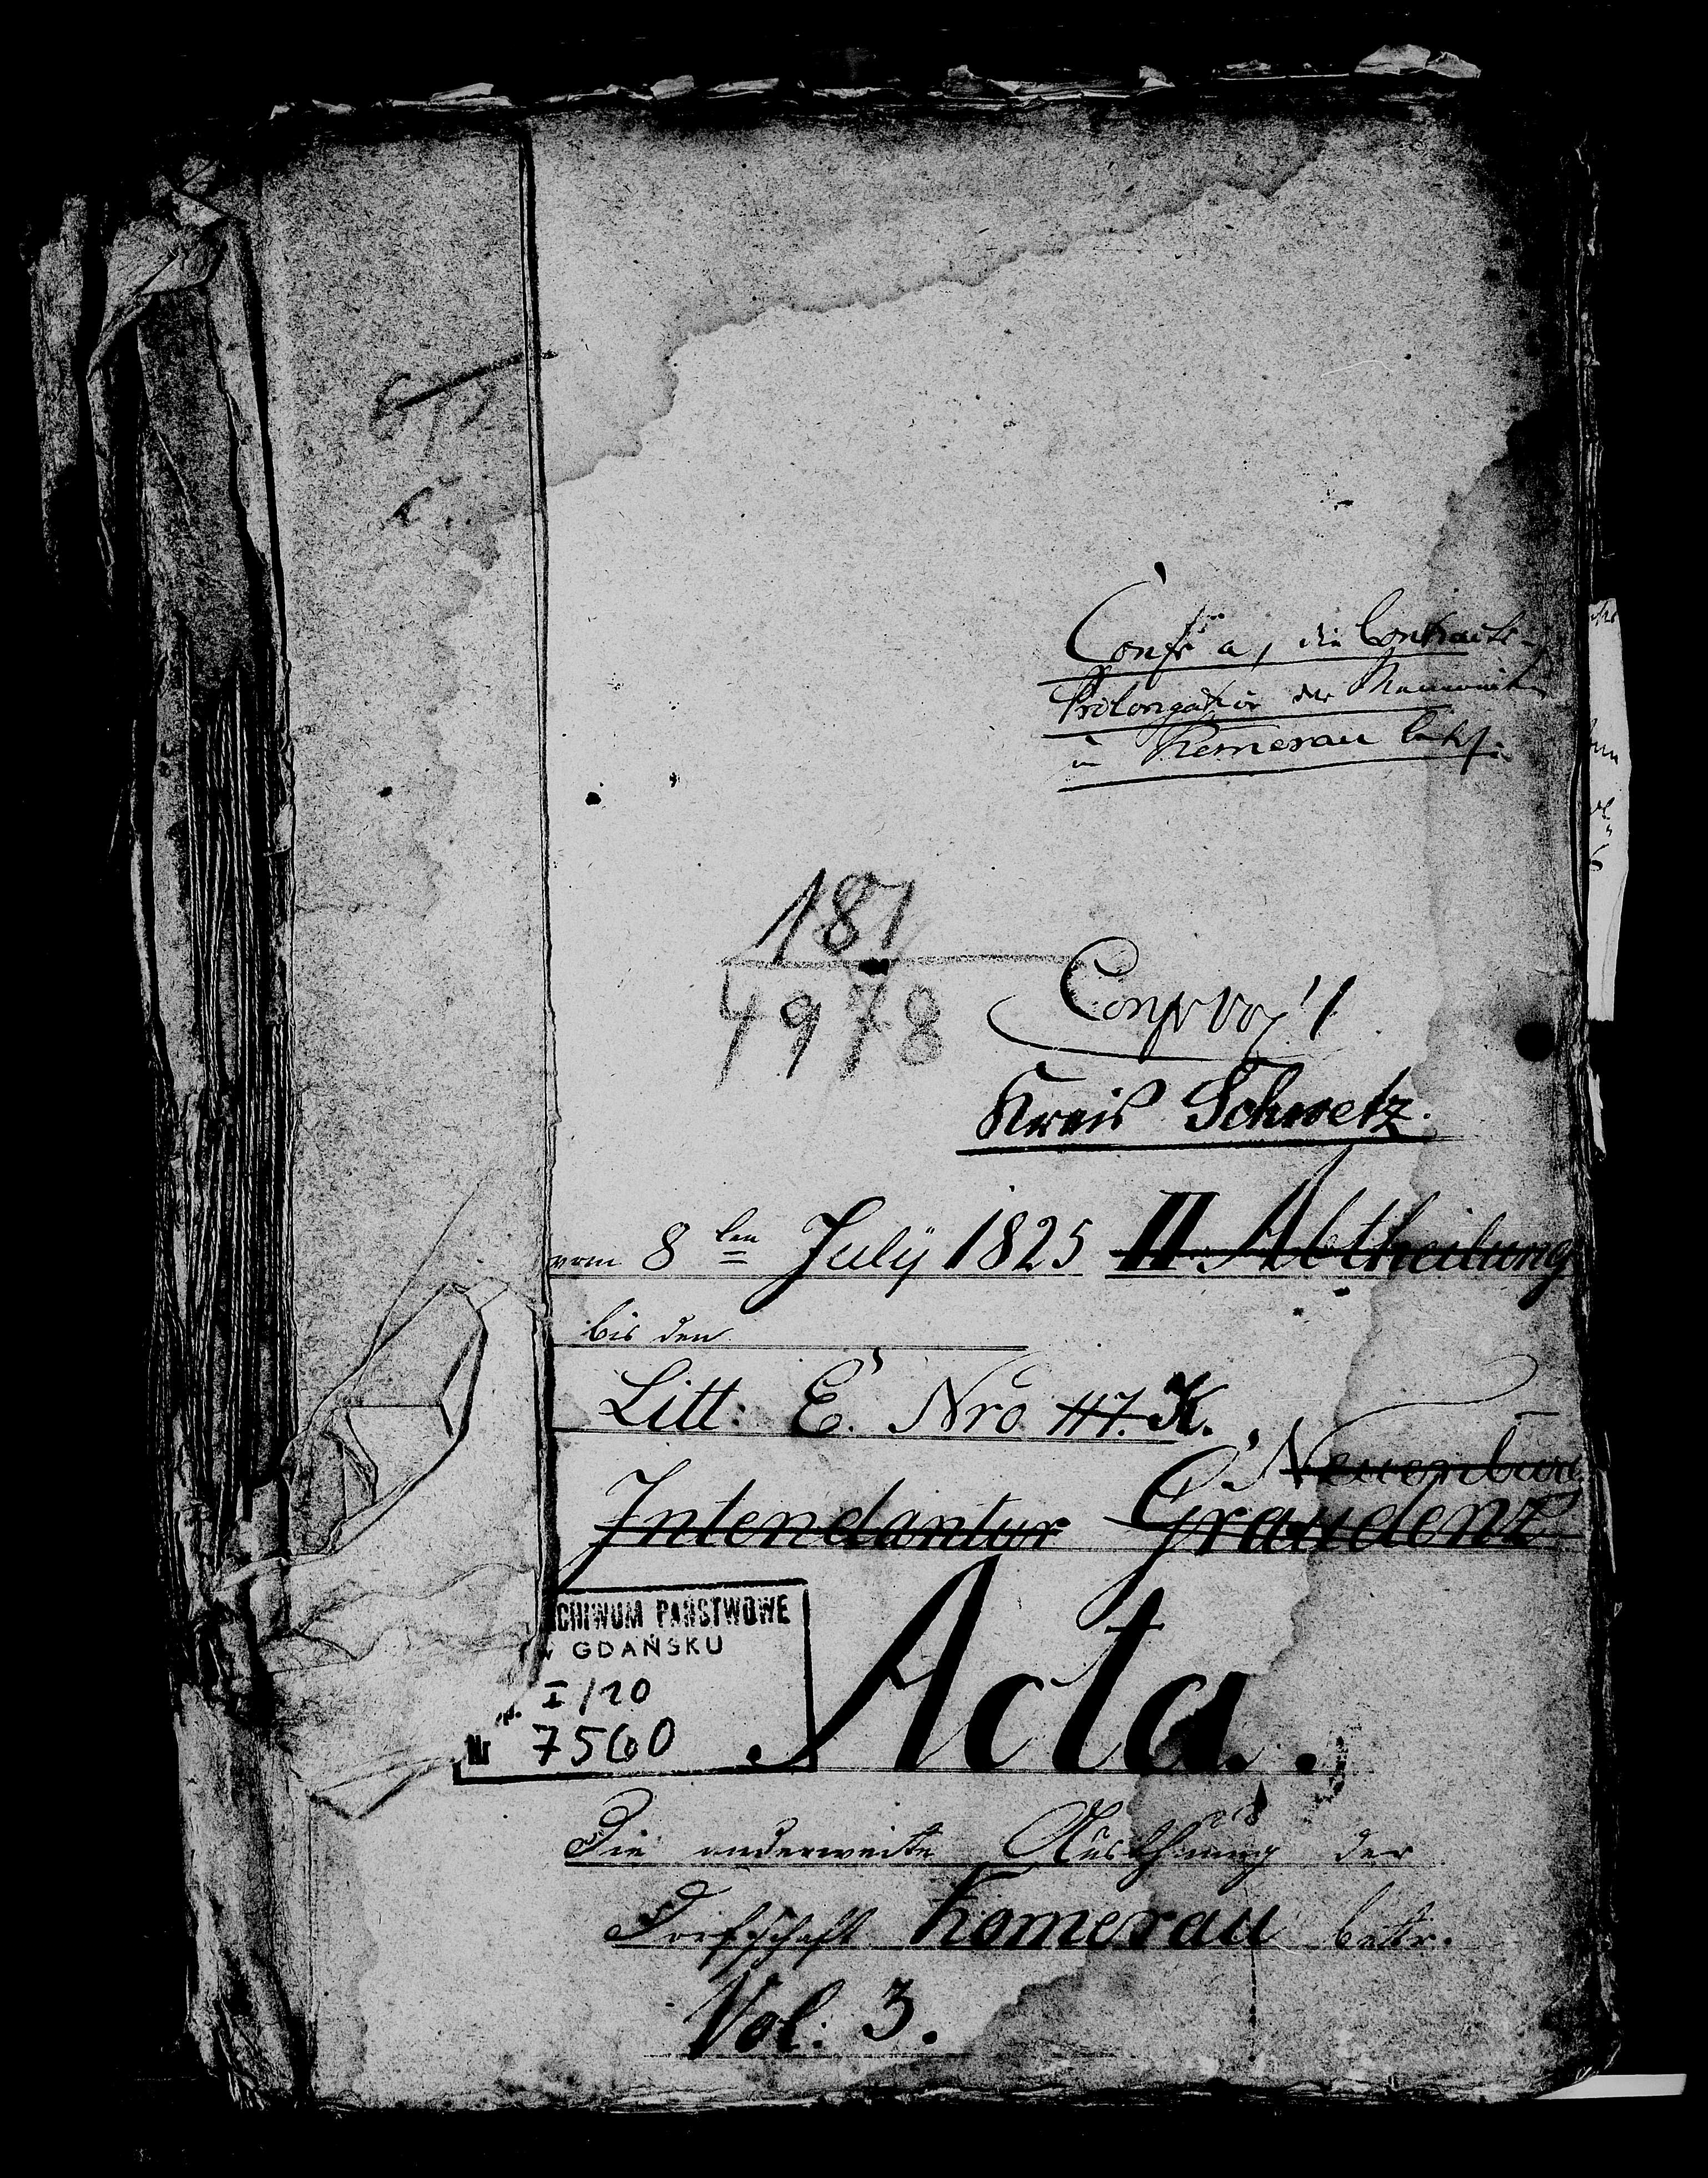 Confr a, die Contracts-
Prolongation der
in Komerau betrf:
181
4978
Kreis Schwetz.
vom 8ten July 1825 II Abtheilung
bis den
Litt: E. Nro 117. K.
Neuenburg
Intendantur Graudenz
CHIWUM PAŃSTWOWE
W GDAŃSKU
I/20
Nr 7560
Acta.
Die anderweite Austhuung der
Dorfschaft Komerau betr.
Vol: 3.